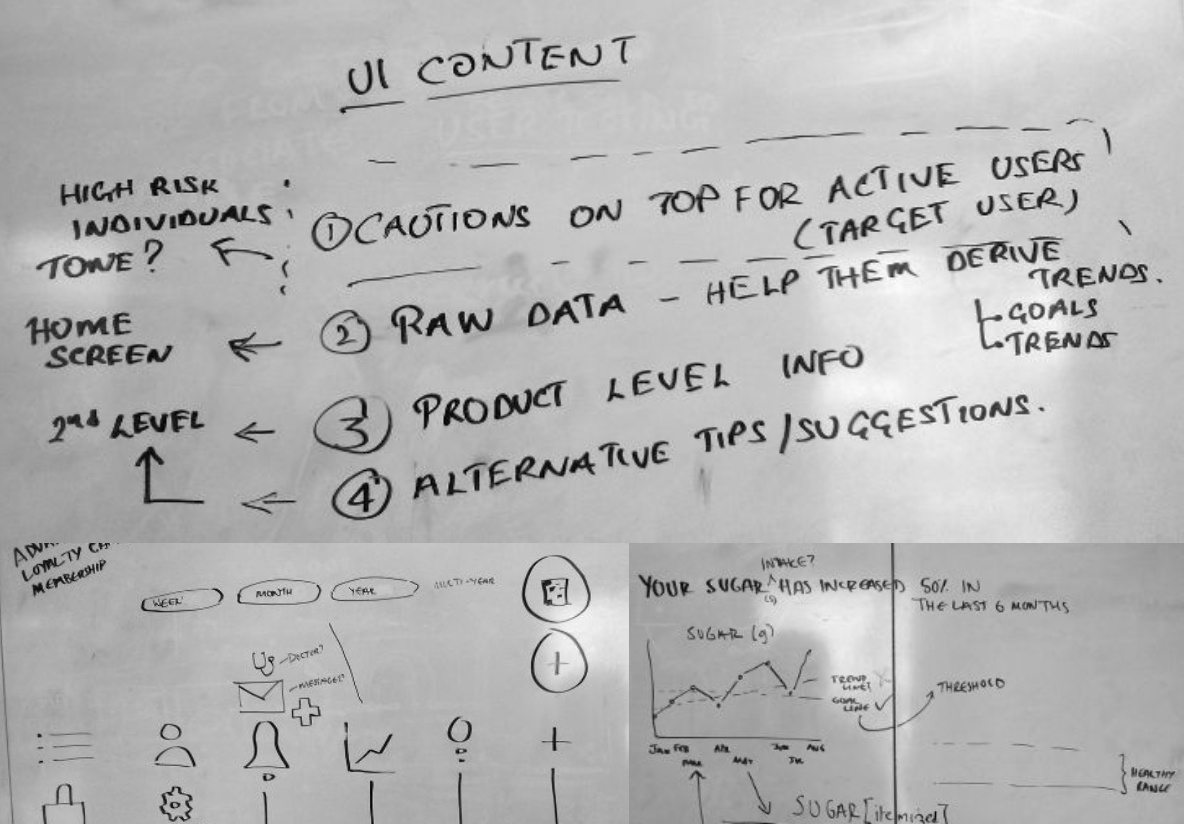 UI CONTENT
HIGH RISK
INDIVIDUALS
TONE?
① CAUTIONS ON TOP FOR ACTIVE USERS
(TARGET USER)
HOME
SCREEN
② RAW DATA - HELP THEM DERIVE
TRENDS.
GOALS
TRENDS
2nd LEVEL
③ PRODUCT LEVEL INFO
④ ALTERNATIVE TIPS/SUGGESTIONS.
LOYALTY
MEMBERSHIP
WEEK
MONTH
YEAR
MULTI-YEAR
DOCTOR?
MESSAGES?
INTAKE?
YOUR SUGAR ^ HAS INCREASED 50% IN
THE LAST 6 MONTHS
SUGAR (g)
TREND
LINE?
GOAL
LINE
THRESHOLD
JAN FEB MAR APR MAY JUN JUL AUG
HEALTHY
RANGE
SUGAR [itemized]